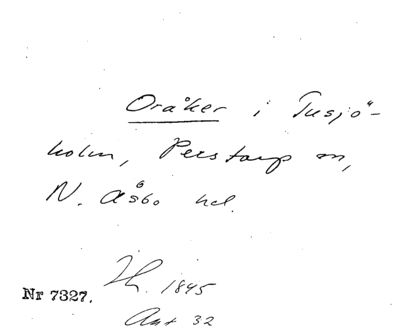 Oråker i Tusjö-
holm, Perstorp sn,
N. Åsbo hd.
Th. 1845
Nr 7327.
Ant 32